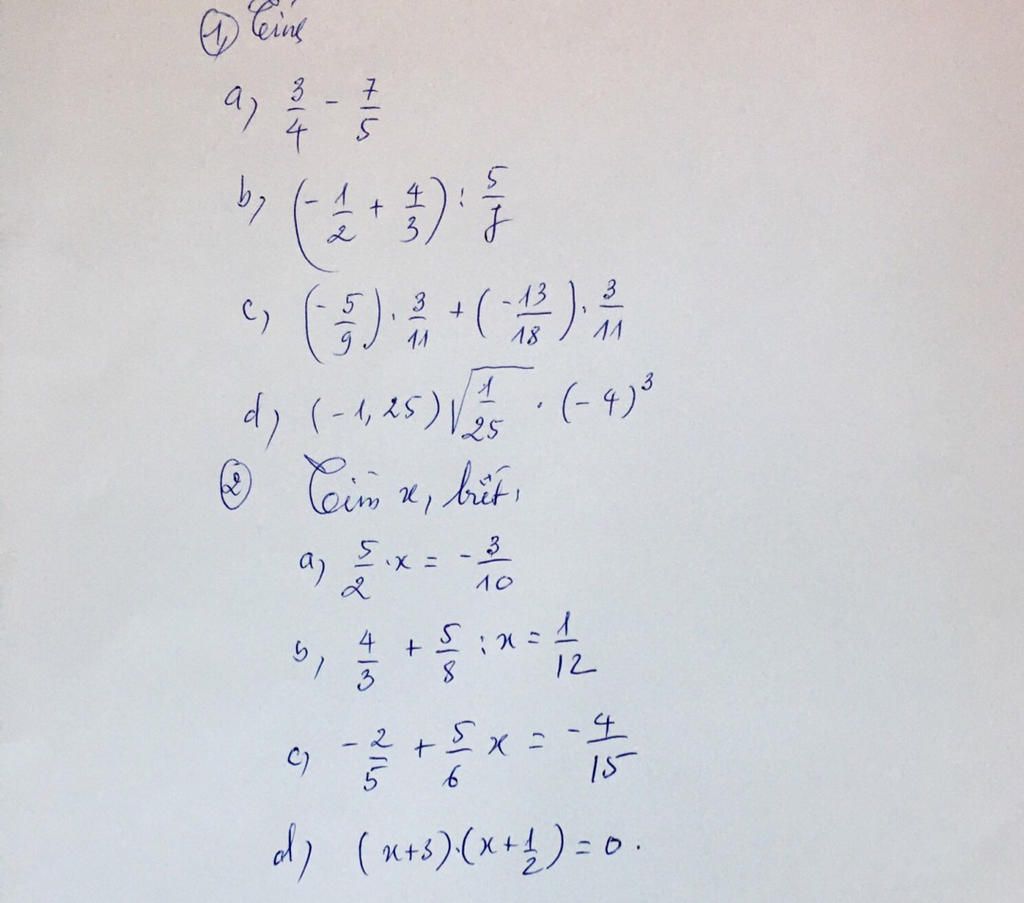 ①, Tính
a, 3/4 - 7/5
b, (-1/2 + 4/3) : 5/8
c, (-5/9) . 3/11 + (-13/18) . 3/11
d, (-1,25) √(1/25) . (-4)³
② Tìm x, biết,
a, 5/2 . x = -3/10
b, 4/3 + 5/8 : x = 1/12
c, -2/5 + 5/6 x = -4/15
d) (x+3).(x+1/2) = 0.